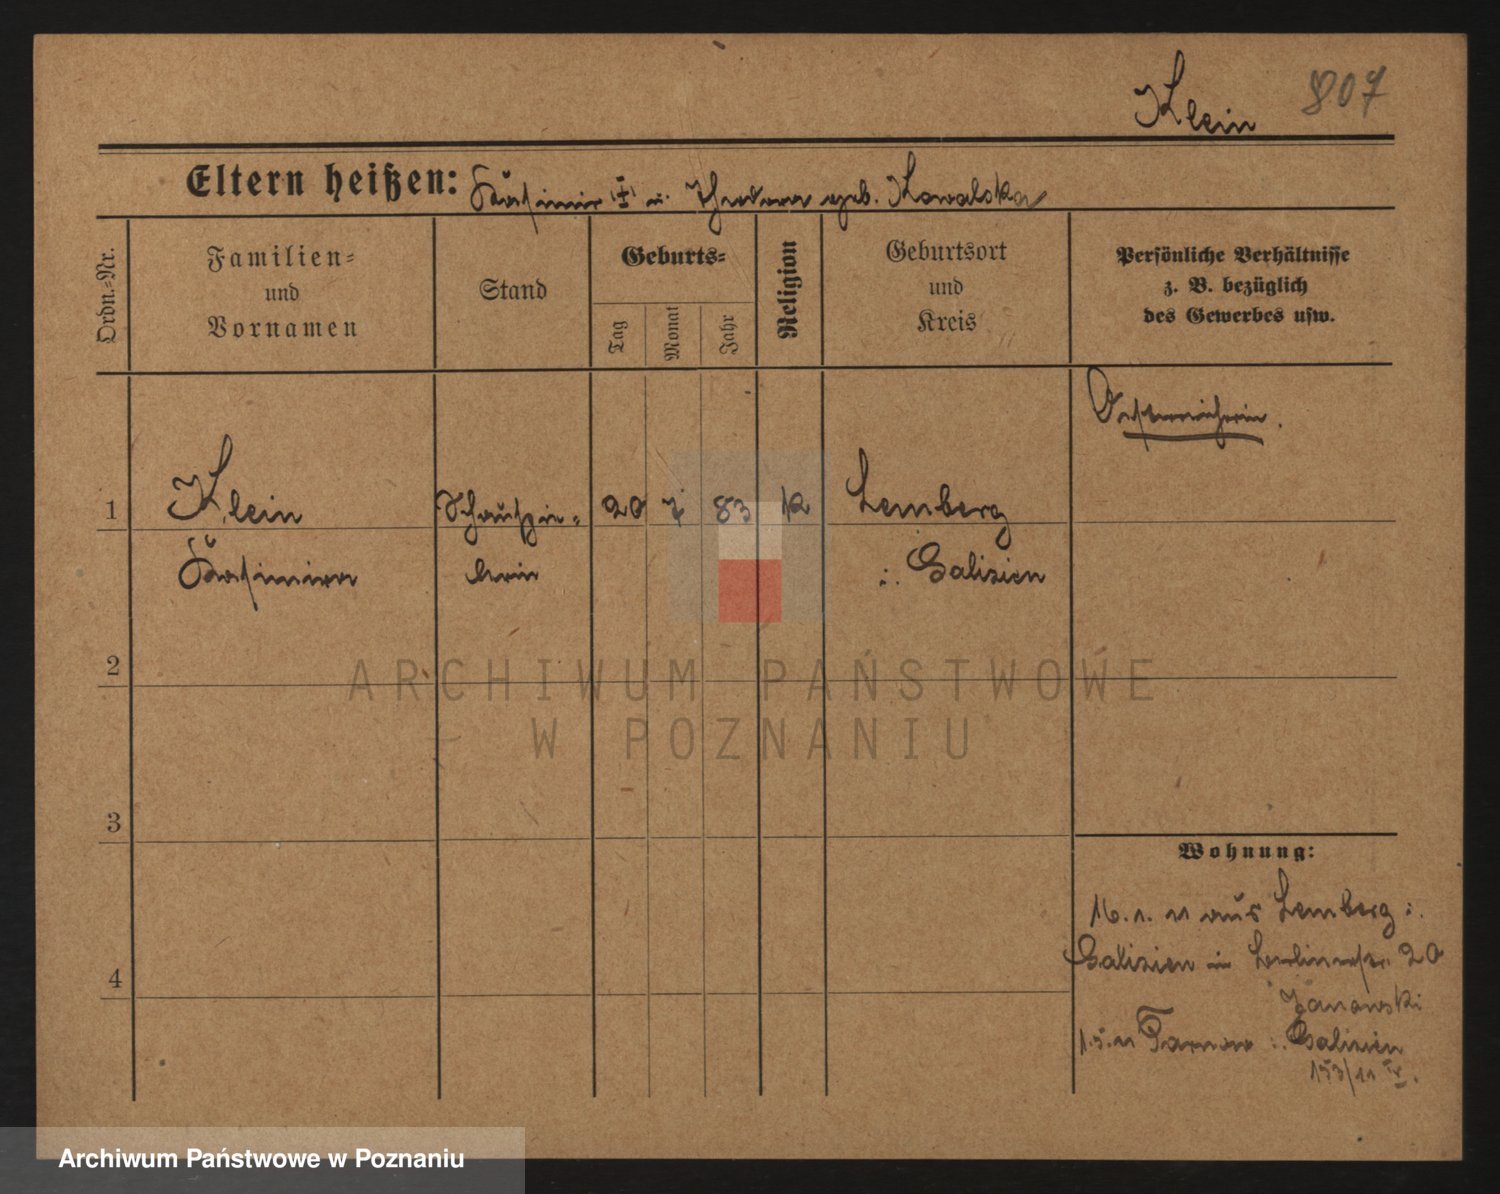 Klein 807
Eltern heißen: Kasimir (†) u. Theodora geb. Kowalska
Ordn.-Nr.
Familien-
und
Vornamen
Stand
Geburts-
Tag
Monat
Jahr
Religion
Geburtsort
und
Kreis
Persönliche Verhältnisse
z. B. bezüglich
des Gewerbes usw.
Oesterreicherin.
1 Klein Schauspie- 20 7 83 k Lemberg
Kasimira lerin i. Galizien
2
ARCHIWUM PAŃSTWOWE
W POZNANIU
3
Wohnung:
16. 1. 11 aus Lemberg i.
Galizien in Berlinerstr. 20
4
Janowski
1.5.11 Tarnow i. Galizien
153/11 IV.
Archiwum Państwowe w Poznaniu